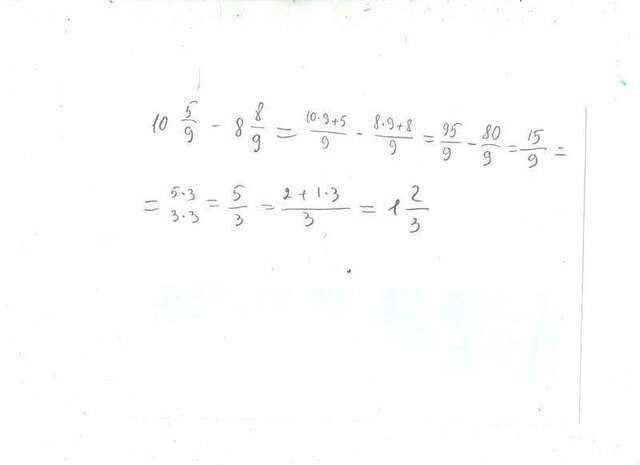 10 5/9 - 8 8/9 = (10·9+5)/9 - (8·9+8)/9 = 95/9 - 80/9 = 15/9 =
= 5·3/3·3 = 5/3 = (2+1·3)/3 = 1 2/3